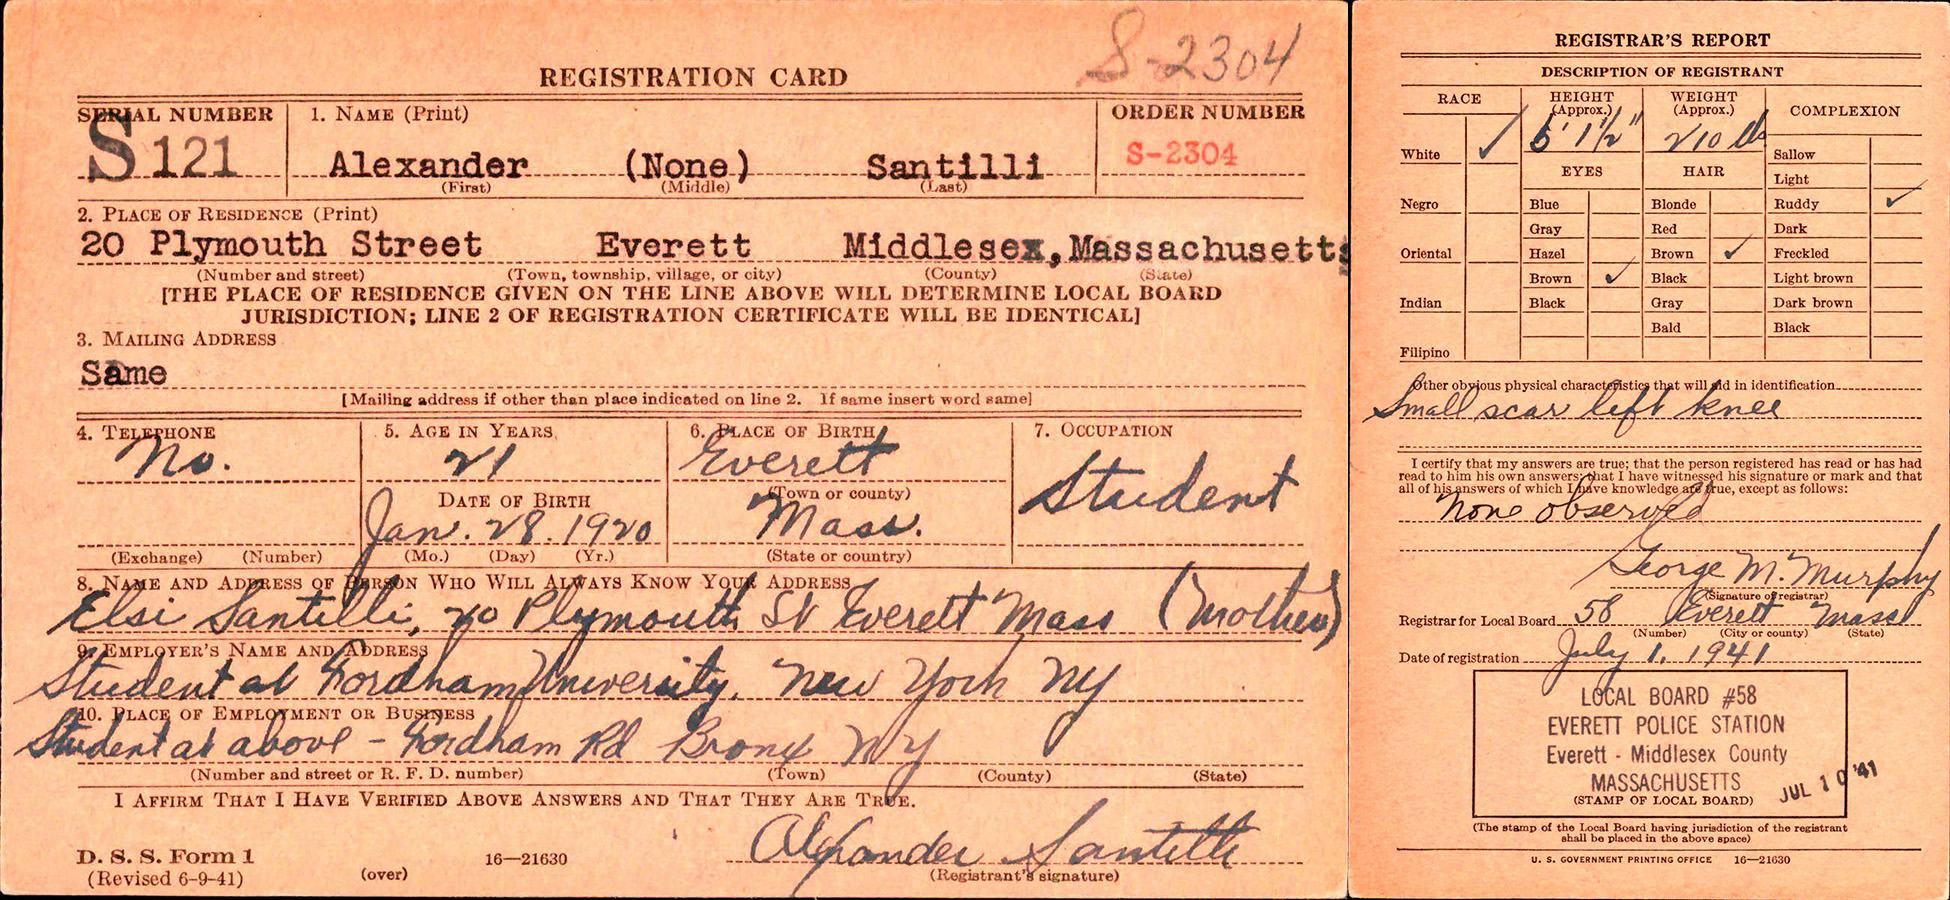 S-2304
REGISTRATION CARD
SERIAL NUMBER 1. NAME (Print) ORDER NUMBER
S 121 Alexander (None) Santilli S-2304
(First) (Middle) (Last)
2. PLACE OF RESIDENCE (Print)
20 Plymouth Street Everett Middlesex, Massachusetts
(Number and street) (Town, township, village, or city) (County) (State)
[THE PLACE OF RESIDENCE GIVEN ON THE LINE ABOVE WILL DETERMINE LOCAL BOARD
JURISDICTION; LINE 2 OF REGISTRATION CERTIFICATE WILL BE IDENTICAL]
3. MAILING ADDRESS
Same
[Mailing address if other than place indicated on line 2. If same insert word same]
4. TELEPHONE 5. AGE IN YEARS 6. PLACE OF BIRTH 7. OCCUPATION
No. 21 Everett Student
DATE OF BIRTH (Town or county)
Jan. 28. 1920 Mass.
(Exchange) (Number) (Mo.) (Day) (Yr.) (State or country)
8. NAME AND ADDRESS OF PERSON WHO WILL ALWAYS KNOW YOUR ADDRESS
Elsi Santilli, 20 Plymouth St Everett Mass (Mother)
9. EMPLOYER'S NAME AND ADDRESS
Student at Fordham University, New York NY
10. PLACE OF EMPLOYMENT OR BUSINESS
Student at above - Fordham Rd Bronx NY
(Number and street or R. F. D. number) (Town) (County) (State)
I AFFIRM THAT I HAVE VERIFIED ABOVE ANSWERS AND THAT THEY ARE TRUE.
Alexander Santilli
D. S. S. Form 1 16—21630
(Revised 6-9-41) (over) (Registrant's signature)
REGISTRAR'S REPORT
DESCRIPTION OF REGISTRANT
RACE HEIGHT (Approx.) WEIGHT (Approx.) COMPLEXION
White ✓ 5' 1½" 210 lb Sallow
EYES HAIR Light
Negro Blue Blonde Ruddy ✓
Gray Red Dark
Oriental Hazel Brown ✓ Freckled
Brown ✓ Black Light brown
Indian Black Gray Dark brown
Bald Black
Filipino
Other obvious physical characteristics that will aid in identification
Small scar left knee
I certify that my answers are true; that the person registered has read or has had
read to him his own answers; that I have witnessed his signature or mark and that
all of his answers of which I have knowledge are true, except as follows:
None observed
George M. Murphy
(Signature of registrar)
Registrar for Local Board 58 Everett Mass
(Number) (City or county) (State)
Date of registration July 1, 1941
LOCAL BOARD #58
EVERETT POLICE STATION
Everett - Middlesex County
MASSACHUSETTS
(STAMP OF LOCAL BOARD) JUL 10 '41
(The stamp of the Local Board having jurisdiction of the registrant
shall be placed in the above space)
U. S. GOVERNMENT PRINTING OFFICE 16—21630